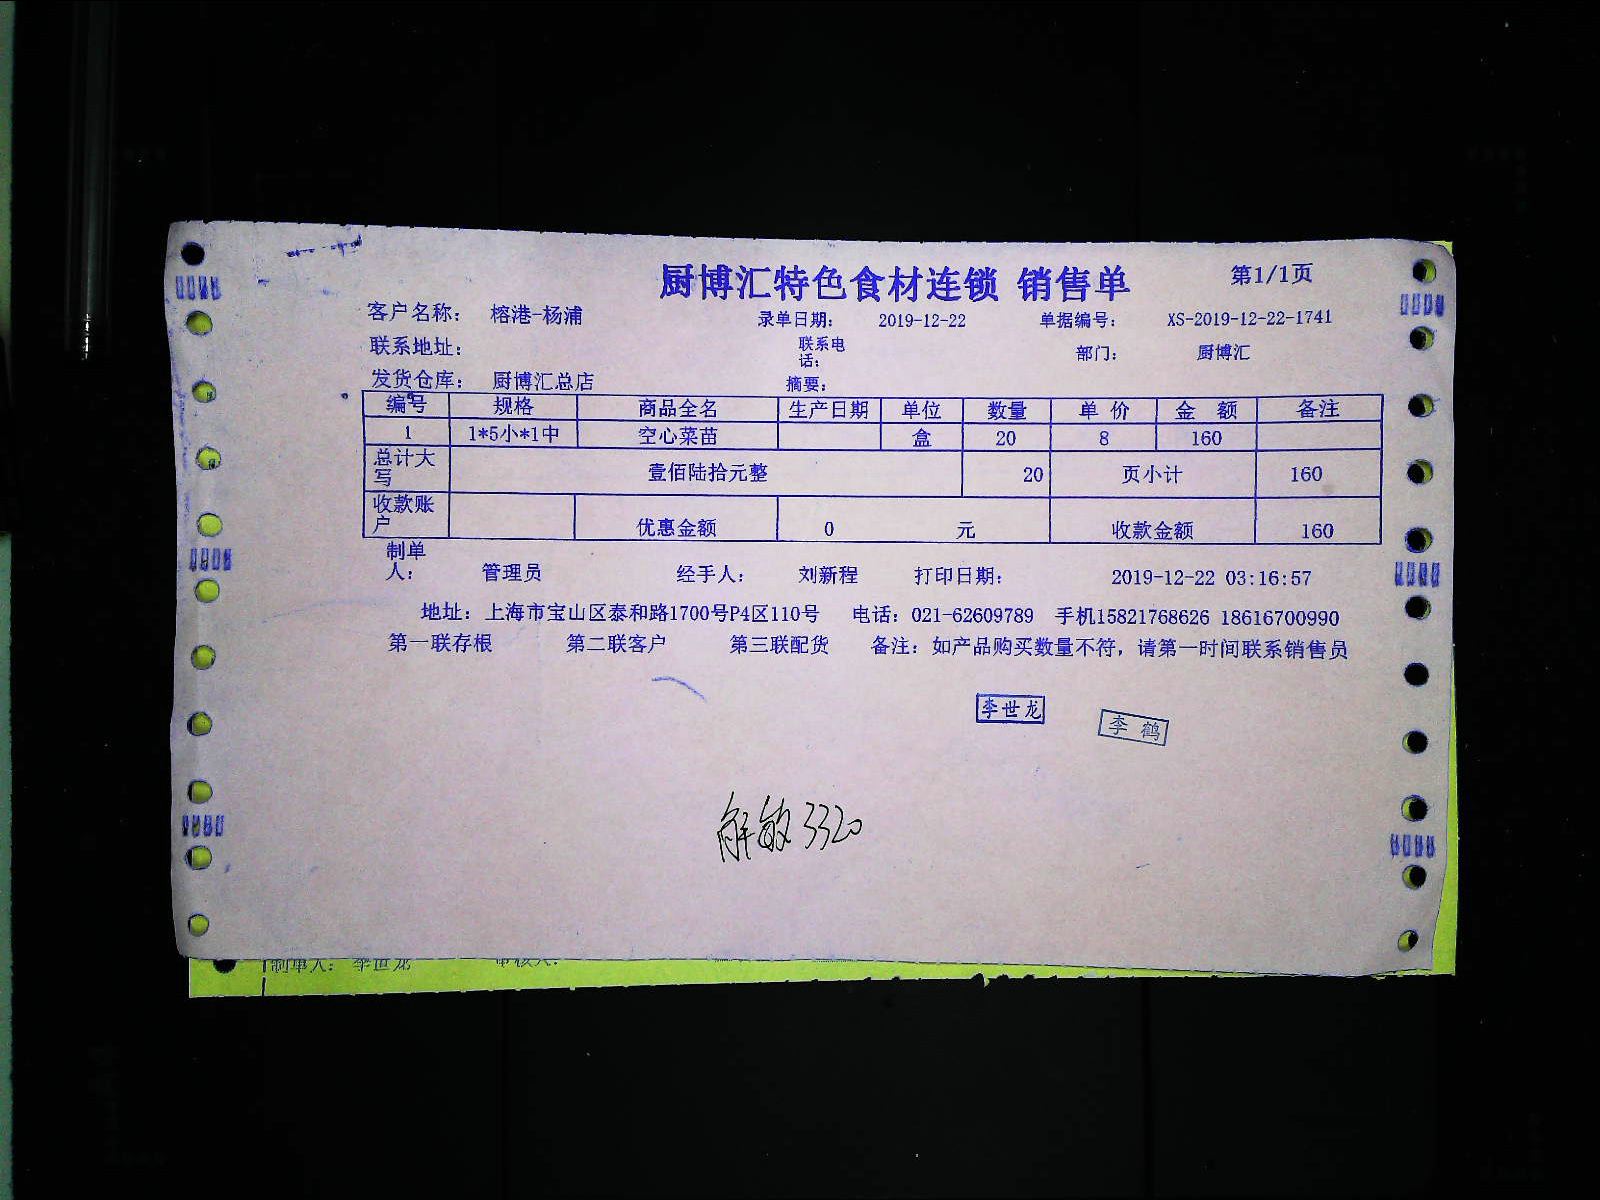 厨博汇特色食材连锁 销售单 第1/1页
客户名称： 榕港-杨浦 录单日期： 2019-12-22 单据编号： XS-2019-12-22-1741
联系地址： 联系电话： 部门： 厨博汇
发货仓库： 厨博汇总店 摘要：
编号 规格 商品全名 生产日期 单位 数量 单 价 金 额 备注
1 1*5小*1中 空心菜苗 盒 20 8 160
总计大写 壹佰陆拾元整 20 页小计 160
收款账户 优惠金额 0 元 收款金额 160
制单人： 管理员 经手人： 刘新程 打印日期： 2019-12-22 03:16:57
地址：上海市宝山区泰和路1700号P4区110号 电话：021-62609789 手机15821768626 18616700990
第一联存根 第二联客户 第三联配货 备注：如产品购买数量不符，请第一时间联系销售员
李世龙 李 鹤
解敏3320
制单人： 李世龙 审核人：